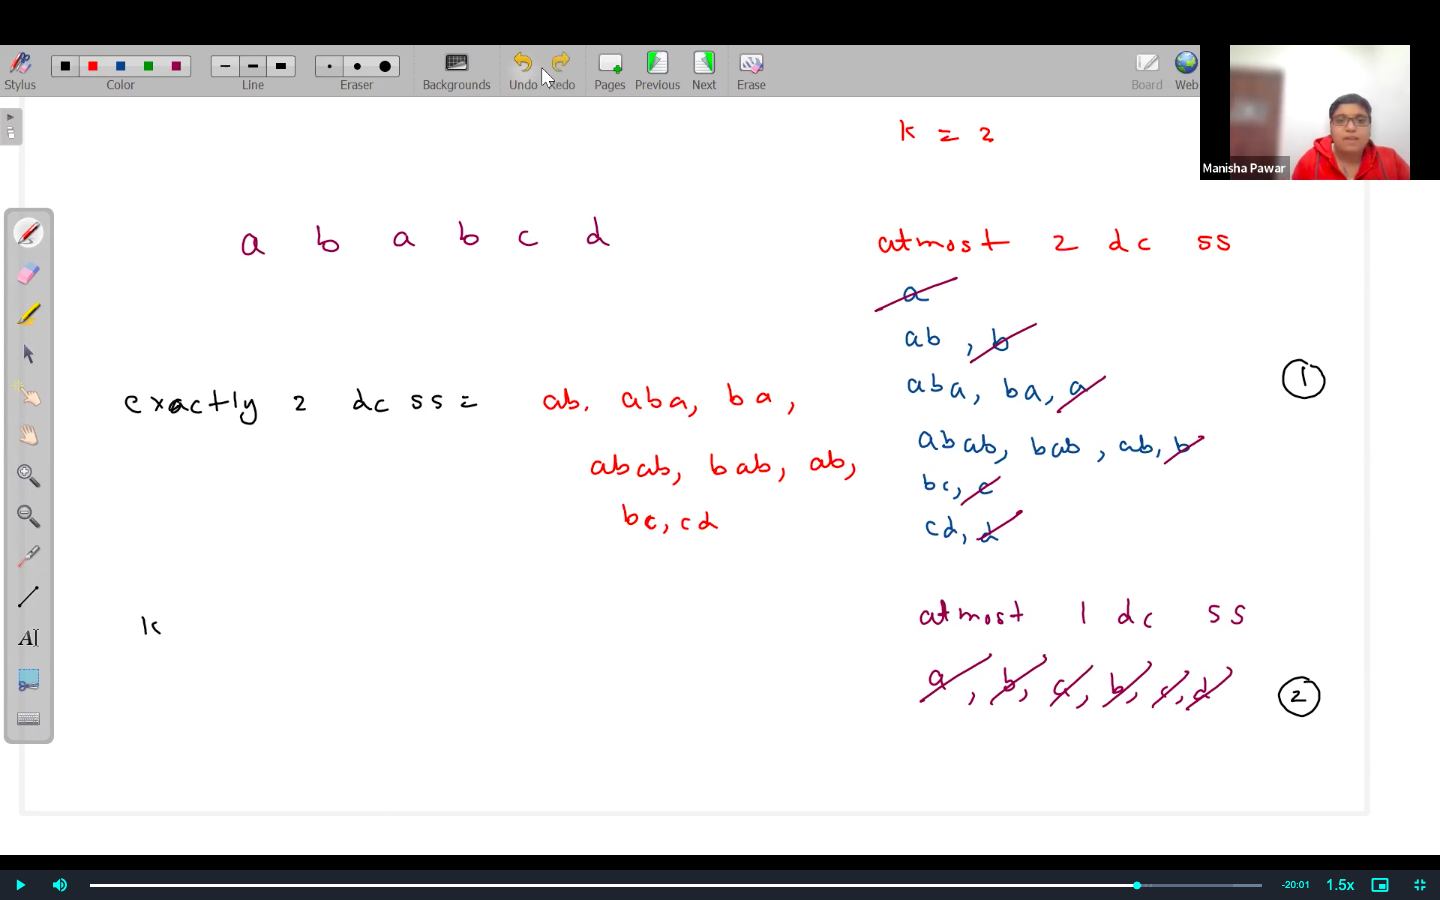 Stylus Color Line Eraser Backgrounds Undo Redo Pages Previous Next Erase Board Web
Manisha Pawar
k = 2
a b a b c d
atmost 2 dc ss
a
ab , b
aba, ba, a
1
exactly 2 dc ss = ab. aba, ba,
abab, bab, ab, b
abab, bab, ab,
bc, c
bc, cd
cd, d
atmost 1 dc ss
k
a, b, a, b, c, d
2
AI
-20:01 1.5x